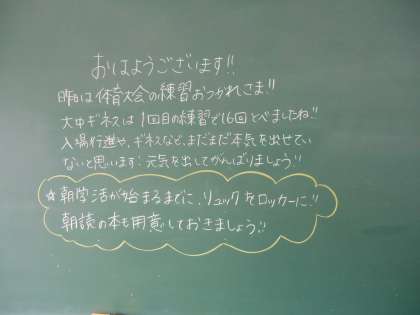 おはようございます!!
昨日は体育大会の練習おつかれさま!!
大中ギネスは1回目の練習で16回とべましたね!!
入場行進や、ギネスなど、まだまだ本気を出せてい
ないと思います。元気を出してがんばりましょう!!
☆朝学活が始まるまでに、リュックをロッカーに!!
朝読の本も用意しておきましょう!!